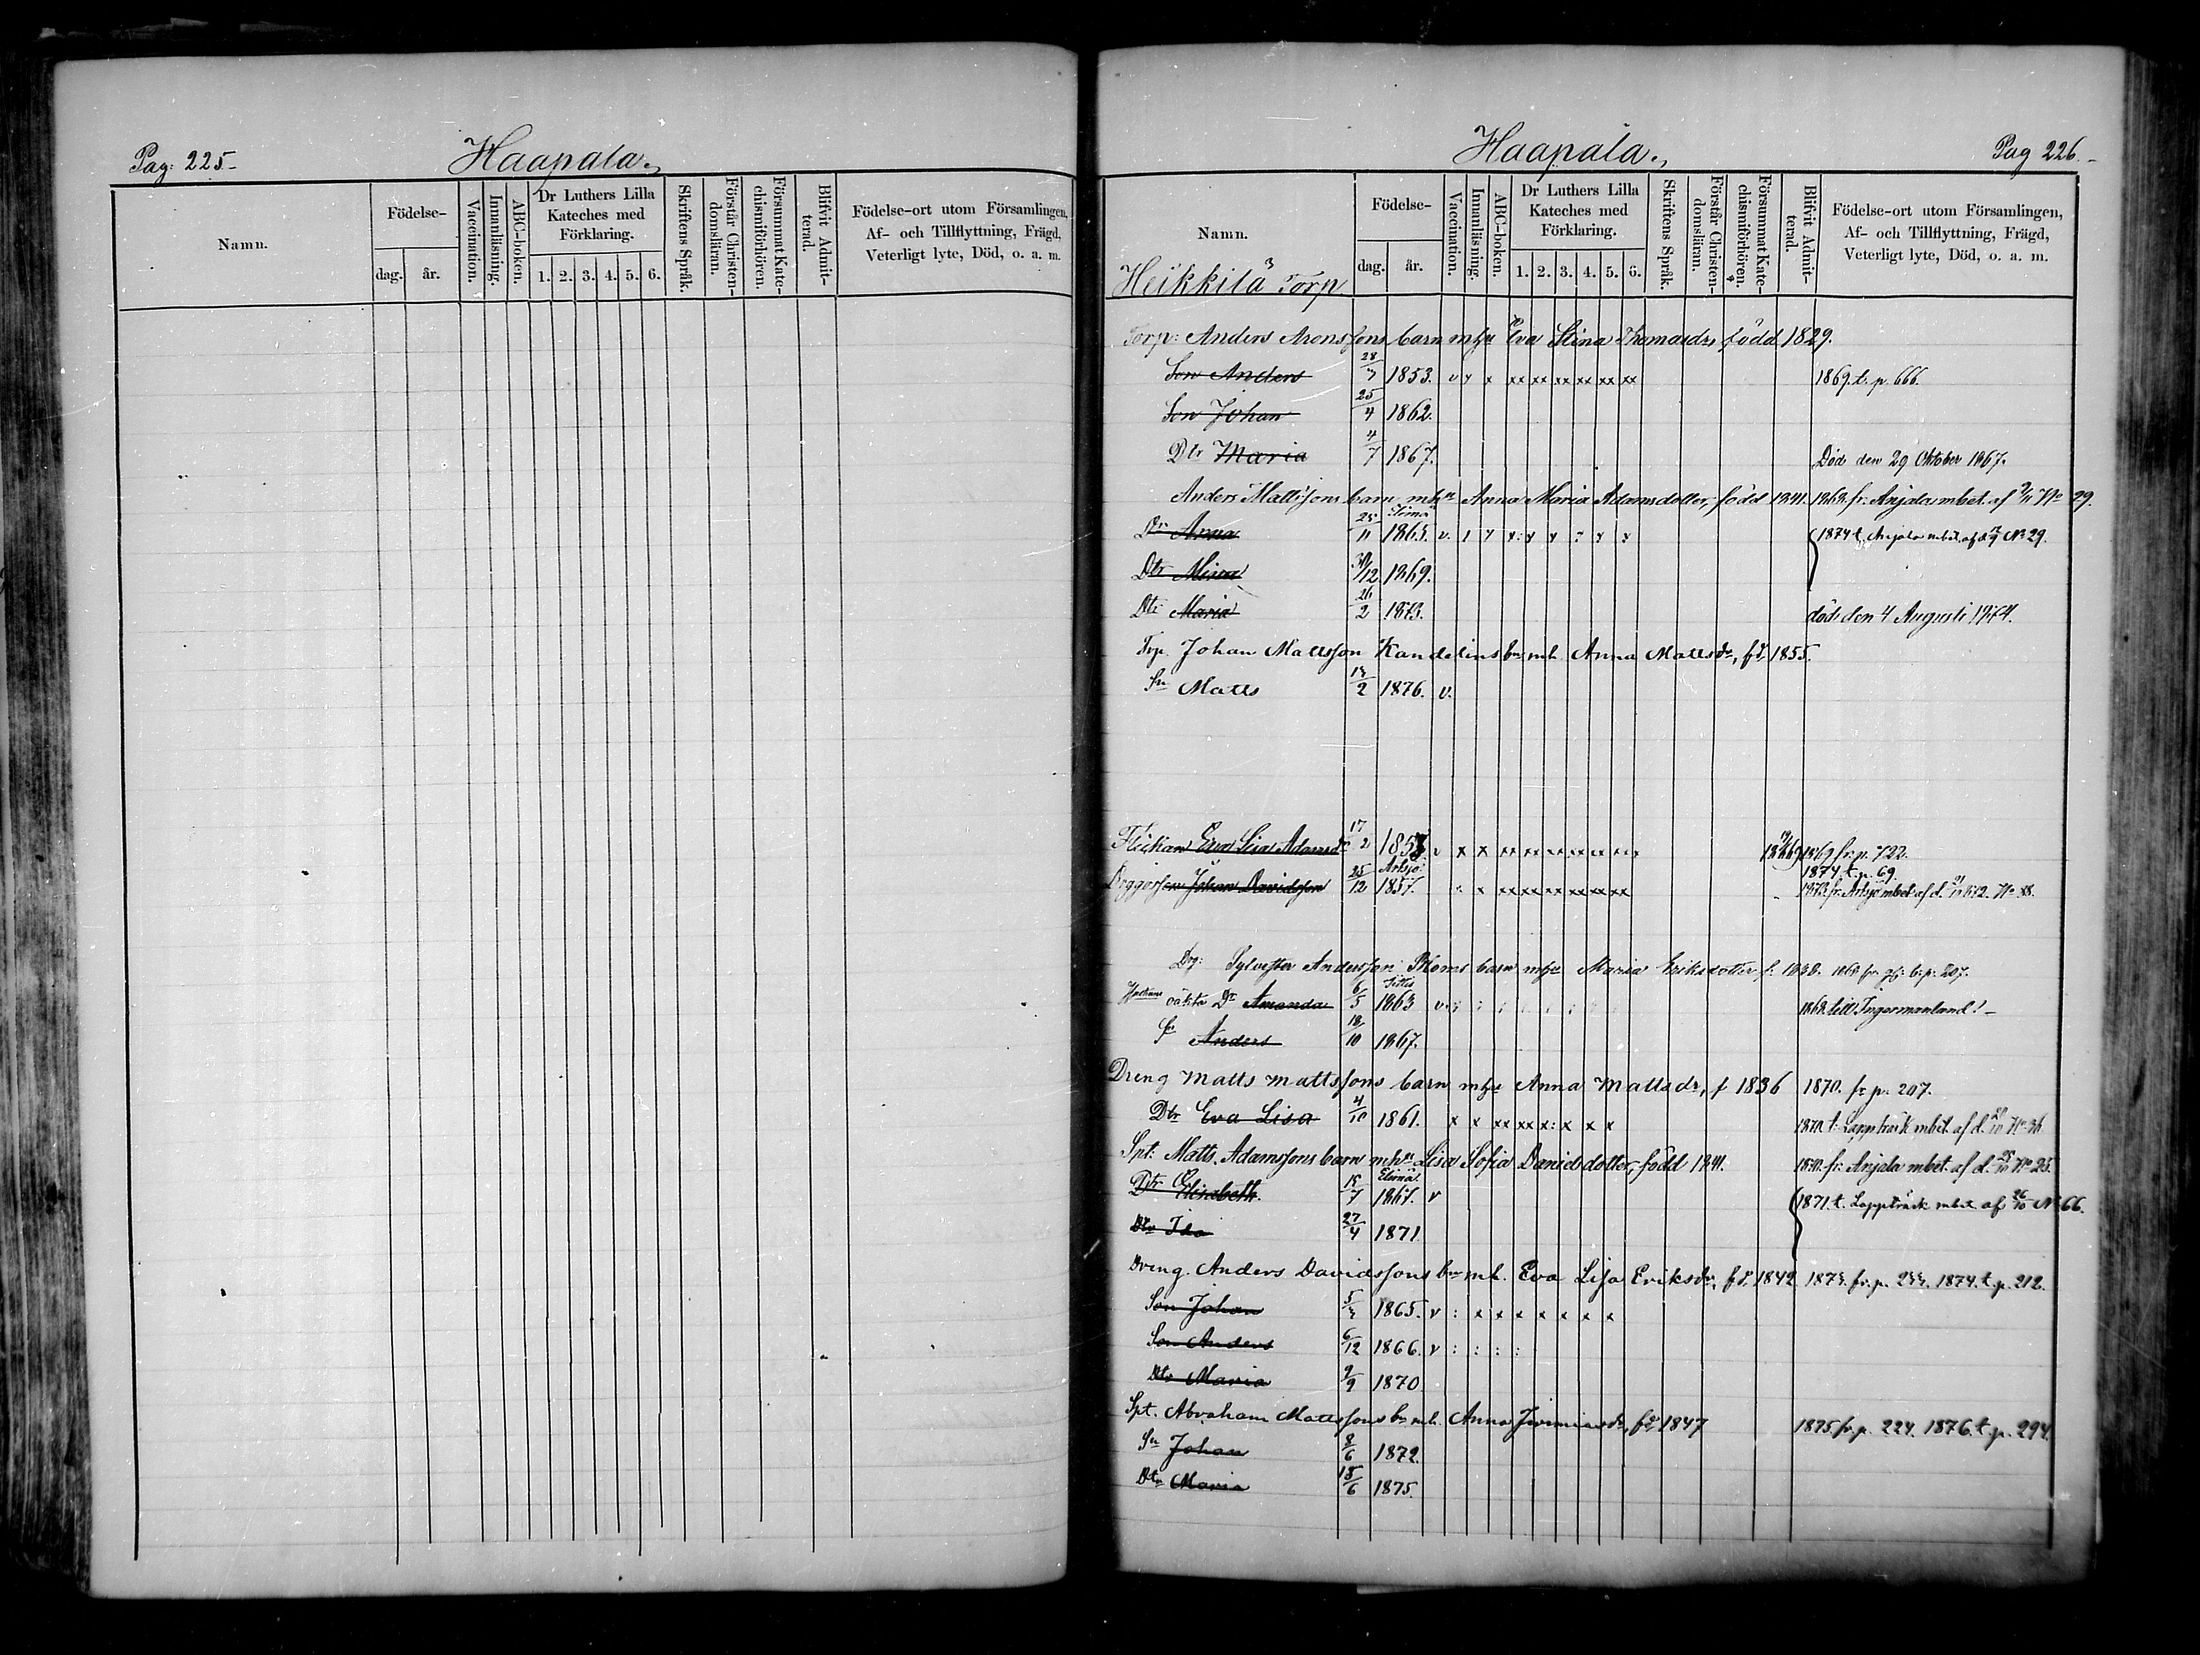 Pag: 225 Haapala.
Namn. Födelse- dag. år. Vaccination. Innanläsning. ABC-boken. Dr Luthers Lilla Kateches med Förklaring. 1. 2. 3. 4. 5. 6. Skriftens Språk. Förstår Christendomsläran. Försummat Katechismiförhören. Blifvit Admitterad. Födelse-ort utom Församlingen, Af- och Tillflyttning, Frägd, Veterligt lyte, Död, o. a. m.
Haapala. Pag 226
Namn. Födelse- dag. år. Vaccination. Innanläsning. ABC-boken. Dr Luthers Lilla Kateches med Förklaring. 1. 2. 3. 4. 5. 6. Skriftens Språk. Förstår Christendomsläran. Försummat Katechismiförhören. Blifvit Admitterad. Födelse-ort utom Församlingen, Af- och Tillflyttning, Frägd, Veterligt lyte, Död, o. a. m.
Heikkilä Torp
Torp: Anders Aronssons barn mhu Eva Stina Thomasdr, född 1829.
Son Anders 28/7 1853. v x x xx xx xx xx xx xx 1869. t. p. 666.
Son Johan 25/4 1862.
Dtr Maria 4/7 1867. Död den 29 Oktober 1867.
Anders Mattssons barn mhu Anna Maria Adamsdotter, född 1841. 1868. fr. Anjala mbet. af No 29.
Elimä
Dr Anna 25/11 1865. v. 1874 t. Anjala mbet. af d. No 29.
Dtr Mina 30/12 1869.
Dtr Maria 26/2 1873. död den 4 Augusti 1874.
Torp. Johan Mattsson Kandelins bn mh Anna Mattsdr, fd. 1855.
Sn Matts 13/2 1876. v.
Flickan Eva Lisa Adamsdr 17/2 185 v x x xx xx xx xx xx xx 1869 fr. p. 722.
1874 t. p. 69.
Artsjö
Johan Davidsson 25/12 1857. x x xx xx xx xx xx xx 1873. fr. Artsjö mbet af d. 1872. No 88.
Drg: Sylvester Andersson Thoms barn mhu Maria Eriksdotter f. 1838. 1868 fr. p. 207.
oäkta Dr Amanda 6/5 1863 v 1868 till Ingermanland! –
Sn Anders 18/10 1867.
Dreng Matts Mattssons barn mhu Anna Mattsdr, f 1836 1870. fr p. 207.
Dtr Eva Lisa 4/10 1861. x x xx xx x: x x x 1870. t. Lappträsk mbet. af d. No 36
Spt: Matts Adamssons barn mhu Lisa Sofia Danielsdotter, född 1841. 1870. fr. Anjala mbet. af d. No 25.
Elimä
Dtr Elisabeth. 18/7 1867. v 1871. t. Lappträsk mbet af 26/10 No 66.
Dtr Ida 27/4 1871
Dreng. Anders Davidssons bn mh. Eva Lisa Eriksdr, fd. 1842 1873. fr. p. 1874. t. p. 212.
Son Johan 1865. v : x x x x x x x
Son Anders 6/12 1866. v : : : :
Dtr Maria 9/9 1870
Spt. Abraham Mattssons bn mh. Anna Jeremiasdr, fd. 1847 1875. fr. p. 224. 1876. t. p. 294.
Sn Johan 8/6 1872.
Dtr Maria 18/6 1875.